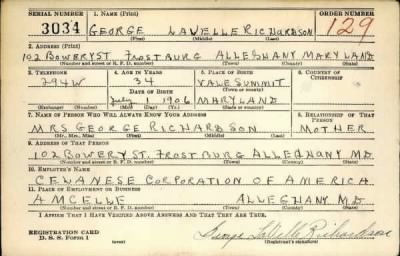 SERIAL NUMBER 1. NAME (Print) ORDER NUMBER
3034 GEORGE LAVELLE RICHARDSON 129
(First) (Middle) (Last)
2. ADDRESS (Print)
102 BOWERY ST. FROSTBURG ALLEGHANY MARYLAND
(Number and street or R. F. D. number) (Town) (County) (State)
3. TELEPHONE 4. AGE IN YEARS 5. PLACE OF BIRTH 6. COUNTRY OF CITIZENSHIP
294W 34 VALE SUMMIT
DATE OF BIRTH (Town or county)
July 1 1906 MARYLAND
(Exchange) (Number) (Mo.) (Day) (Yr.) (State or country)
7. NAME OF PERSON WHO WILL ALWAYS KNOW YOUR ADDRESS 8. RELATIONSHIP OF THAT PERSON
MRS GEORGE RICHARDSON MOTHER
(Mr., Mrs., Miss) (First) (Middle) (Last)
9. ADDRESS OF THAT PERSON
102 BOWERY ST. FROSTBURG ALLEGHANY MD.
(Number and street or R. F. D. number) (Town) (County) (State)
10. EMPLOYER'S NAME
CELANESE CORPORATION OF AMERICA
11. PLACE OF EMPLOYMENT OR BUSINESS
AMCELLE ALLEGHANY MD.
(Number and street or R. F. D. number) (Town) (County) (State)
I AFFIRM THAT I HAVE VERIFIED ABOVE ANSWERS AND THAT THEY ARE TRUE.
REGISTRATION CARD George LaVelle Richardson
D. S. S. FORM 1 (Registrant's signature)